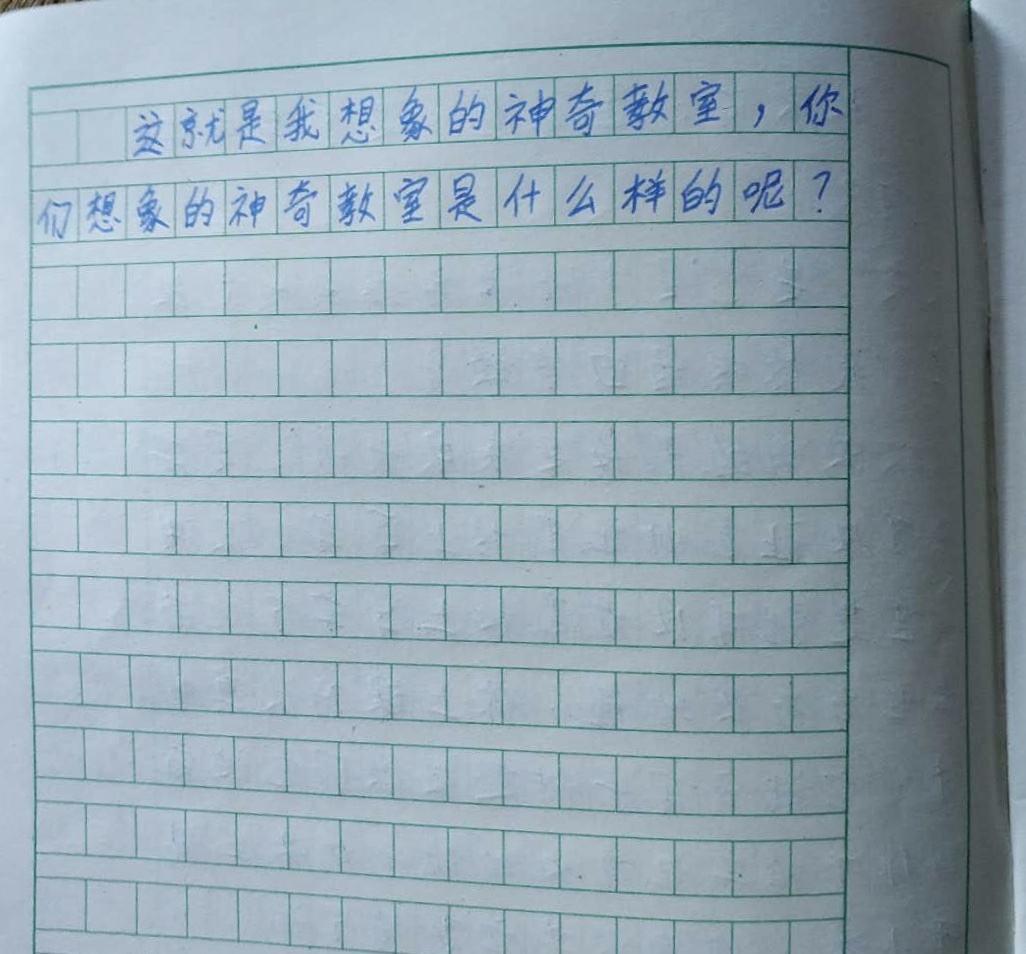 这就是我想象的神奇教室，你
们想象的神奇教室是什么样的呢？